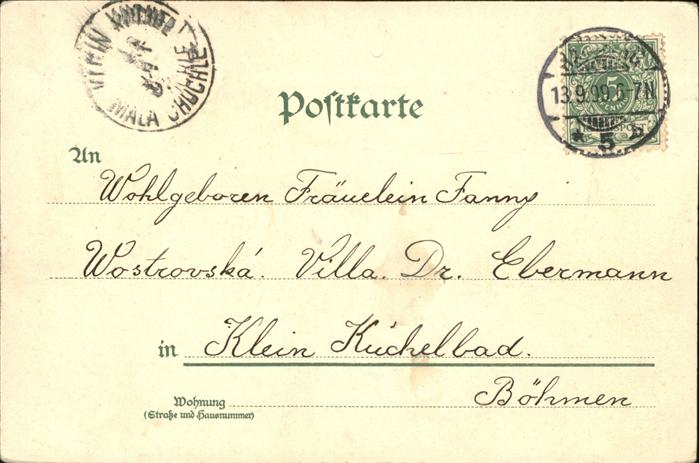 MALA CHUCHLE
Postkarte
5
13.9.99.6-7N
* 5 b
An
Wohlgeboren Fräuelein Fanny
Wostrovská. Villa. Dr. Ebermann
in Klein Kuchelbad.
Böhmen
Wohnung
(Straße und Hausnummer)